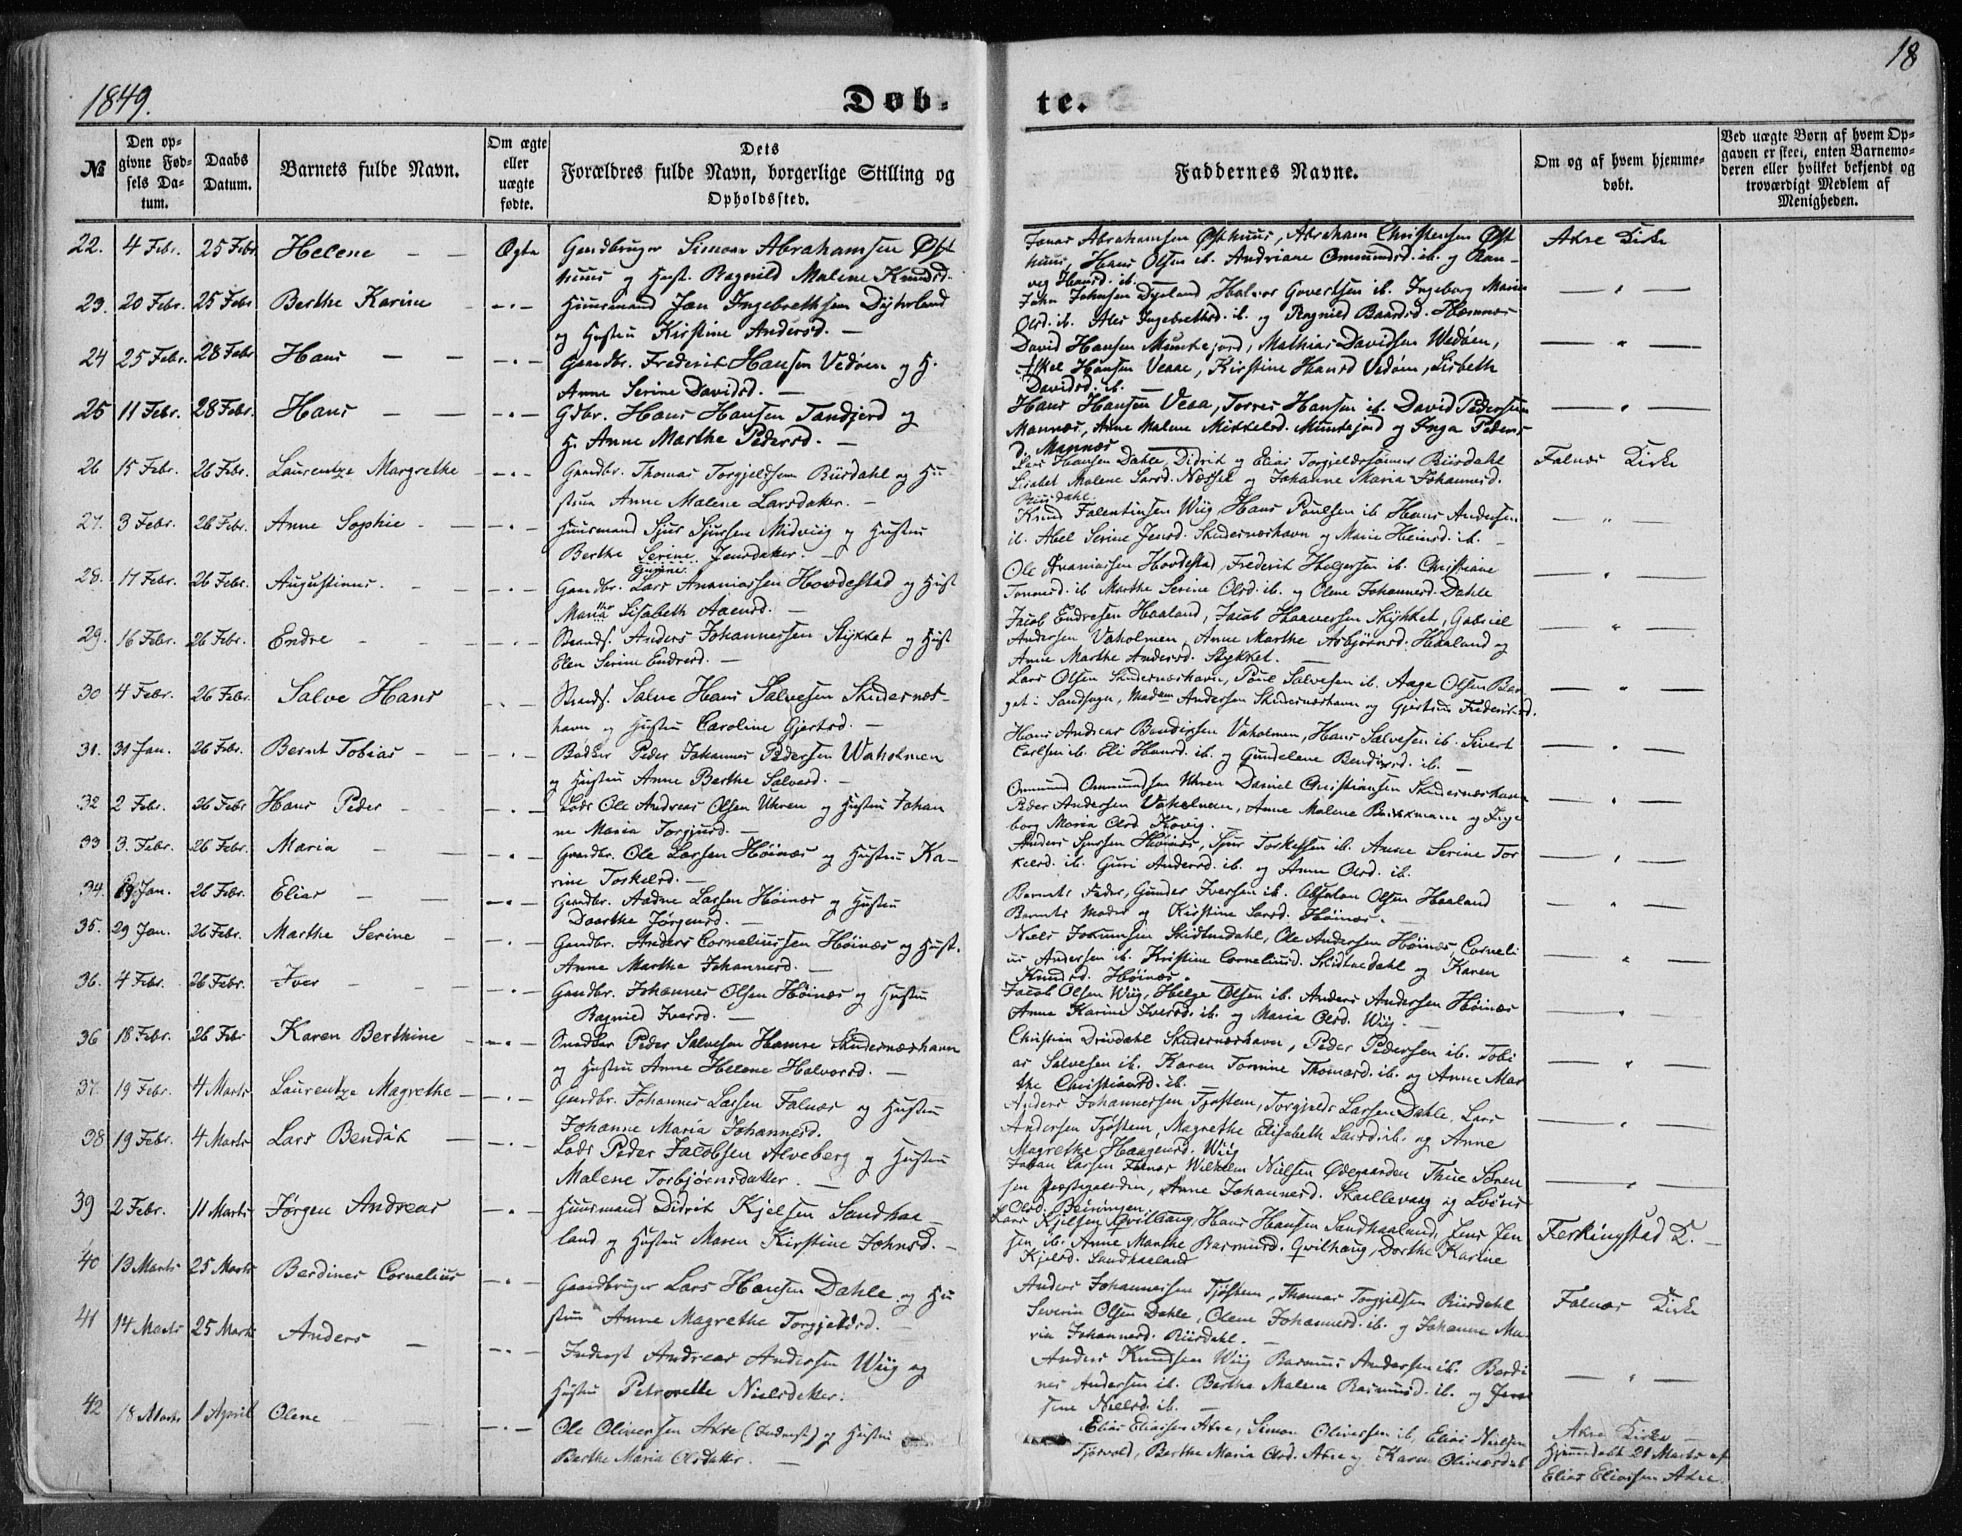 1849.
Døb-
te.
18
№
Den op-
givne Fød-
sels Da-
tum.
Daabs
Datum.
Barnets fulde Navn.
Om ægte
eller
uægte
fødte.
Dets
Forældres fulde Navn, borgerlige Stilling og
Opholdssted.
Faddernes Navne.
Om og af hvem hjemme-
døbt.
Ved uægte Børn af hvem Op-
gaven er skeet, enten Barnemo-
deren eller hvilket bekjendt og
troværdigt Medlem af
Menigheden.
22. 4 Febr. 25 Febr. Helene — — Ægte
Gaardbruger Simon Abrahamsen Øst
huus og Hust. Ragnild Malene Knudsd.
Jonas Abrahamsen Østhuus, Abraham Christensen Øst
huus, Hans Olsen ib. Andriane Omundsd. ib. og Ran-
veg Hansd. ib. —
Akre Kirke
23. 20 Febr. 25 Febr. Berthe Karine — — " —
Huusmand Jan Ingebrethsen
og Hustru Kirstine Andersd. —
John Johnsen Halvor Govertsen ib. Ingeborg Marie
Olsd. ib. Ingebrethsd. ib. og Ragnild Baardsd.
— " —
24 25 Febr. 28 Febr. Hans — — — " —
Gaardbr. Frederik Hansen Vedøen og H.
Anne Serine Davidsd. —
David Hansen Munkejord, Mathias Davidsen Wedøen,
Hansen Veaae, Kirstine Hansd Vedøen, Lisbeth
Davidsd. ib.
— " —
25 11 Febr. 28 Febr. Hans — — — " —
Gdbr. Hans Hansen Sandjord og
H. Anne Marthe Pedersd. —
Hans Hansen Veaa, Torres Hansen ib. David Pedersen
Mannæs, Anne Malene Mikkelsd. Munkejord og Inga Peders
d. Mannæs
— " —
26 15 Febr. 26 Febr. Laurentze Margrethe — " —
Gaardbr. Thomas Torgjeldsen Riisdahl og Hu
struu Anne Malene Larsdatter. —
Lars Hansen Dahle, Didrik og Elias Torgjeldssønner Riisdahl
Malene Larsd. og Johanne Maria Johannesd.
Riisdahl.
Falnæs Kirke
27. 3 Febr. 26 Febr. Anne Sophie — — " —
Huusmand Sjur Sjursen Midviig og Hustru
Berthe Serine Jensdatter. —
Knud Falentinsen Wiig Hans Poulsen ib. Hans Andersen
ib. Abel Serine Jensd. Skudenæshavn og Marie Hansd. ib. —
— " —
28. 17 Febr. 26 Febr. Augustinus. — — " —
Gaardbr. Lars Ananiassen Hovdestad og Hust
Lisabeth —
Ole Ananiassen Hovdestad, Frederik Helgesen ib. Christiane
ib. Marthe Serine Olsd. ib. og Olene Johannesd. Dahle
— " —
29. 16 Febr. 26 Febr. Endre — — — " —
Strands. Anders Johannessen Stykket og Hust
Elen Serine Endresd. —
Jacob Endresen Haaland, Jacob Haavorsen Stykket, Gabriel
Andersen Vaholmen, Anne Marthe Asbjørnsd. Haaland og
Anne Marthe Andersd. Stykket. —
— " —
30 4 Febr. 26 Febr. Salve Hans — " —
Strands. Salve Hans Salvesen Skudenæs-
havn og Hustru Caroline Gjertsd. —
Lars Olsen Skudenæshavn, Poul Salvesen ib. Aage Olsen
Madm Andersen Skudenæshavn og Gjertrue Frederiksd.
— " —
31. 31 Jan. 26 Febr. Bernt Tobias — — — " —
Bødker Peder Johannes Pedersen Waholmen
og Hustru Anne Berthe Salvesd. —
Hans Andreas Bendixsen Vaholmen, Hans Salvesen ib. Sivert
Carlsen ib. Eli Hansd. ib. og Gundelene Bendixsd. ib. —
— " —
32 2 Febr. 26 Febr. Hans Peder — — " —
Lods Ole Andreas Olsen Uhren og Hustru Johan
ne Maria Torgiersd. —
Ommund Ommundsen Uhren Daniel Christiansen Skudenæshavn
Peder Andersen Vaholmen, Anne Malene og Inge
borg Maria Olsd
— " —
33 3. Febr. 26 Febr. Maria — — — " —
Gaardbr. Ole Larsen Høinæs og Hustru Ka-
rine Torkelsd. —
Anders Sjursen Høinæs, Sjur Torkelsen ib. Anne Serine Tor
kelsd. ib. Guri Andersd. ib. og Anne Olsd. ib.
— " —
34. Jan. 26 Febr. Elias — — — " —
Gaardbr. Aadne Larsen Høinæs og Hustru
Dorthe Jørgensd. —
Barnets Fader, Gunder Iversen ib. Absalon Olsen Haaland
Barnets Moder og Kirstine Larsd. Høinæs. —
— " —
35. 29 Jan. 26 Febr. Marthe Serine — — " —
Gaardbr. Anders Corneliussen Høinæs og Hust.
Anne Marthe Johannesd. —
Niels Johnsen Ole Andersen Høinæs, Corneli
us Andersen ib. Kristine Corneliusd. og Karen
Knudsd. Høinæs.
— " —
36. 4 Febr. 26 Febr. Iver — — — " —
Gaardbr. Johannes Olsen Høinæs og Hustru
Ragnild Iversd. —
Jacob Olsen Wiig, Helge Olsen ib. Anders Andersen Høinæs
Anne Karine Iversd. ib. og Maria Olsd. Wiig. —
— " —
36 18 Febr. 26 Febr Karen Berthine — — " —
Snedker Peder Salvesen Hamre Skudenæshavn
og Hustru Anne Helene Halvorsd. —
Christian Driedahl Skudenæshavn, Peder Pedersen ib. Tobi
as Salvesen ib. Karen Tomine Thomasd. ib. og Anne Mar
the Christiansd. ib.
— " —
37. 19 Febr. 4 Marts Laurentze Magrethe — — " —
Gaardbr. Johannes Larsen Falnæs og Hustru
Johanne Maria Johannesd.
Anders Johannessen Tjøstem, Torgjeld Larsen Dahle, Lars
Andersen Tjøstem, Magrethe Elisabeth Larsd. ib. og Anne
Magrethe Haagensd. Wiig
— " —
38 19 Febr. 4. Marts Lars Bendik — — " —
Lods Peder Jacobsen Alveberg og Hustru
Malene Torbjørnsdatter. —
Johan Larsen Falnæs Wilhelm Nielsen Ødegaarden Thue Søren
sen Anne Johannesd. Skaillevaag og Lovise
Olsd.
— " —
39 2 Febr. 11 Marts Jørgen Andreas — " —
Huusmand Didrik Kjelsen Sandhaa-
land og Hustru Maren Kirstine Johnsd. —
Lars Kjelsen Qvilhaug, Hans Hansen Sandhaaland, Jens Jen
sen ib. Anne Marthe Rasmusd. Qvilhaug, Dorthe Karine
Kjelsd. Sandhaaland
Ferkingstad K. —
40 13 Marts 25 Marts Berdines Cornelius — " —
Gaardbruger Lars Hansen Dahle og Hu
struu Anne Magrethe Torgjelsd. —
Anders Johannessen Tjøstem, Thomas Torgjeldsen Riisdahl
Severin Olsen Dahle, Olene Johannesd. ib. og Johanne Ma-
ria Johannesd. Riisdahl. —
Falnæs Kirke
41 14 Marts 25 Marts Anders — — " —
Inderst Andreas Andersen Wiig og
Hustru Petronelle Nielsdatter.
Anders Knudsen Wiig Rasmus Andersen ib. Berdi
nes Andersen ib. Berthe Malene Rasmusd. ib. og
sine Nielsd. ib. —
— " —
42 18 Marts 1 April Olene — — " —
Ole Oliversen Akre (Inderst) og Hustru
Berthe Maria Olsdatter. —
Elias Eliassen Akre, Simon Oliversen ib, Elias Nielsen
Berthe Maria Olsd. Akre og Karen Oliversd ib
Akre Kirke —
Hjemmedøbt 21 Marts af
Elias Eliassen Akre.